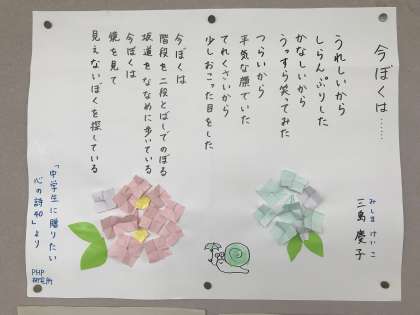 今ぼくは……
みしま けいこ
三島 慶子
うれしいから
しらんぷりした
かなしいから
うっすら笑ってみた
つらいから
平気な顔でいた
てれくさいから
少しおこった目をした
今ぼくは
階段を二段とばしでのぼる
坂道をななめに歩いている
今ぼくは
鏡を見て
見えないぼくを探している
「中学生に贈りたい
心の詩40」より
PHP
研究所